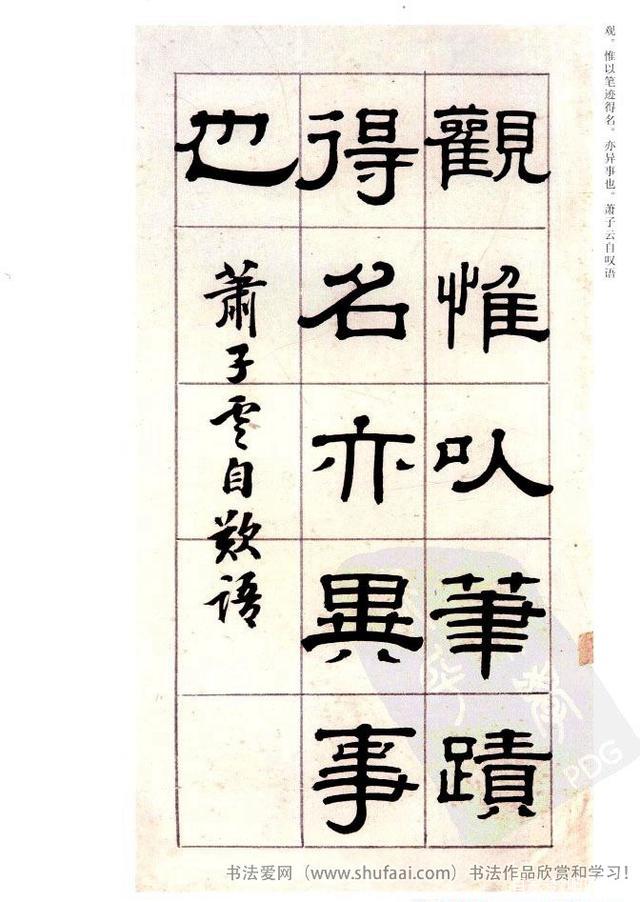 观。惟以笔迹得名。亦异事也。萧子云自叹语
觀惟㕥筆蹟
得名亦異事
也
蕭子雲自歎語
PDG
书法爱网（www.shufaai.com）书法作品欣赏和学习！